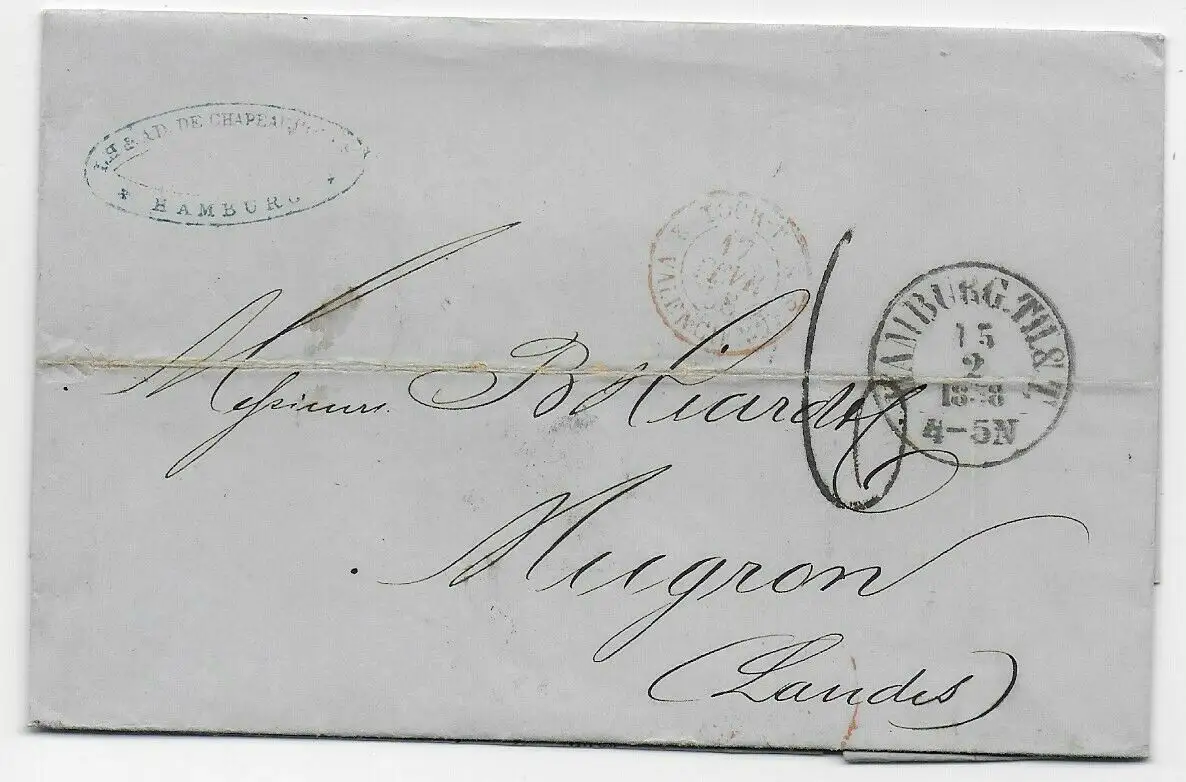 DE
HAMBURG
TOUR-T
17
FEVR
HAMBURG. TH.& T.
15
2
1858
4-5N
6
Messieurs B Hiard
Mugron
(Landes)